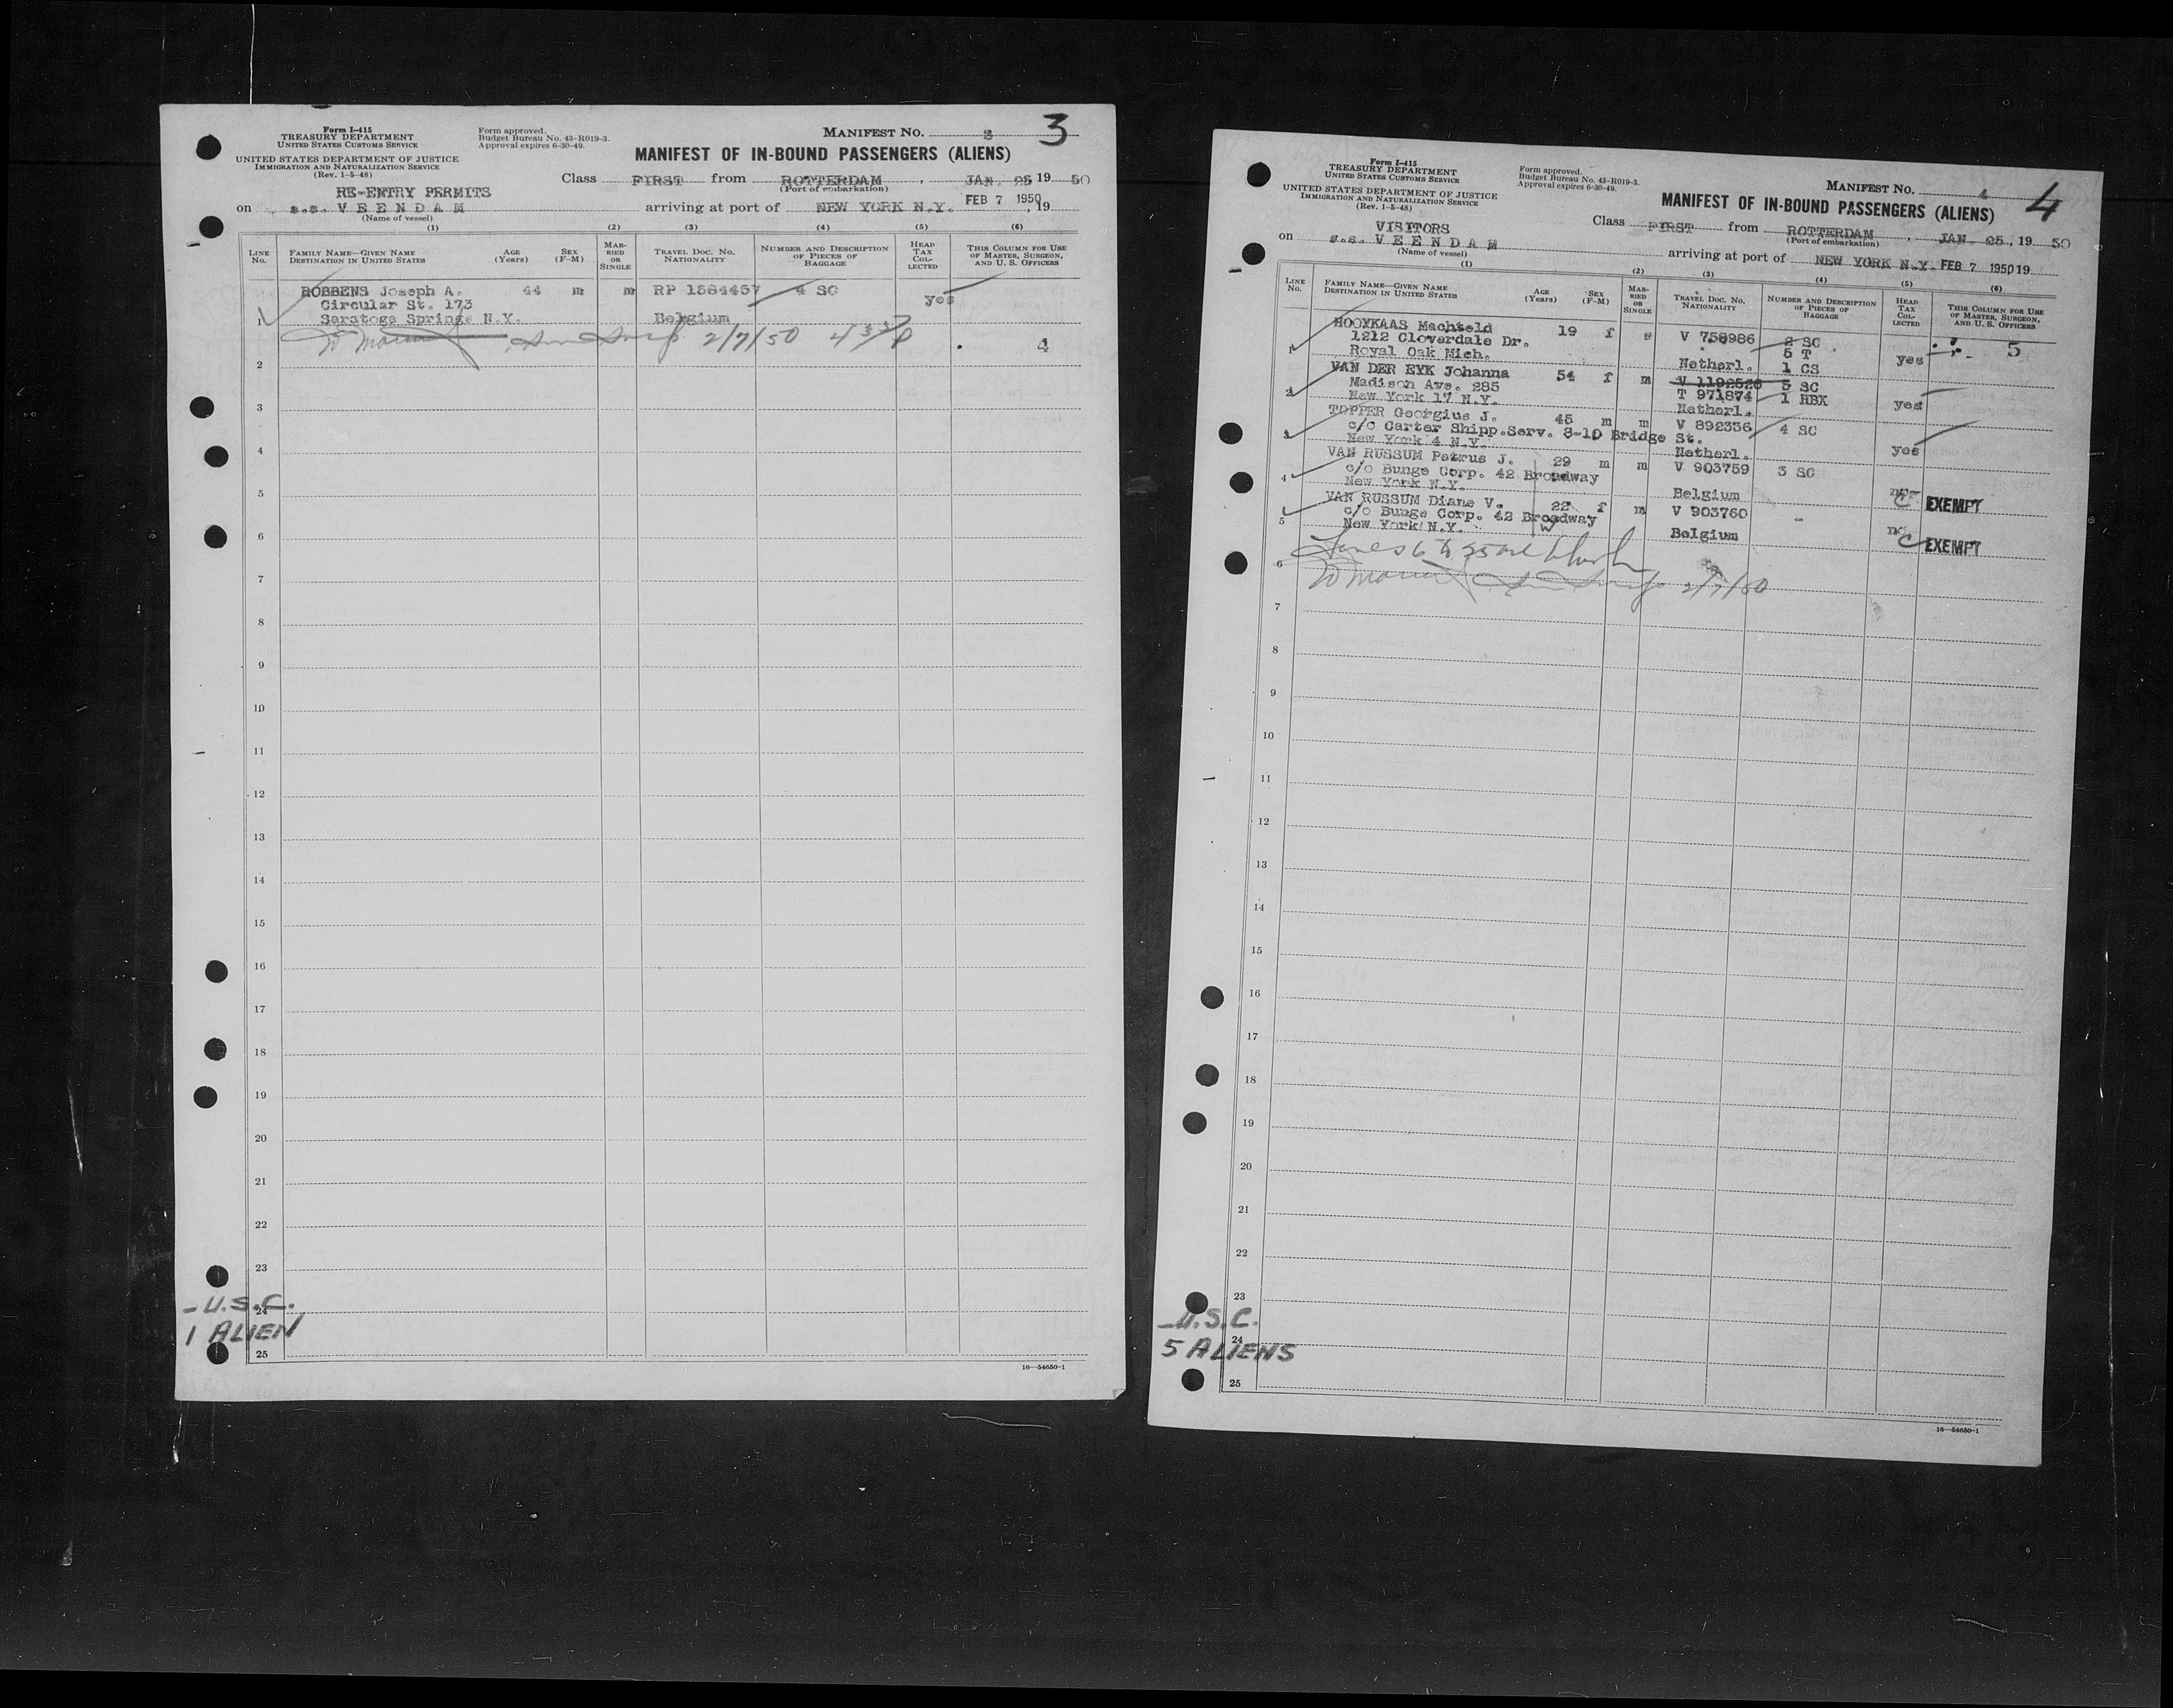 Form I-415
TREASURY DEPARTMENT
UNITED STATES CUSTOMS SERVICE
UNITED STATES DEPARTMENT OF JUSTICE
IMMIGRATION AND NATURALIZATION SERVICE
(Rev. 1-5-48)
Form approved.
Budget Bureau No. 43-R019-3.
Approval expires 6-30-49.
MANIFEST NO. 3 3
MANIFEST OF IN-BOUND PASSENGERS (ALIENS)
RE-ENTRY PERMITS
Class FIRST from ROTTERDAM, JAN. 25 19 50
(Port of embarkation)
on s.s. V E E N D A M arriving at port of NEW YORK N.Y. FEB 7 1950, 19
(Name of vessel)
(1) (2) (3) (4) (5) (6)
LINE No. FAMILY NAME—GIVEN NAME DESTINATION IN UNITED STATES AGE (Years) SEX (F-M) MARRIED OR SINGLE TRAVEL DOC. No. NATIONALITY NUMBER AND DESCRIPTION OF PIECES OF BAGGAGE HEAD TAX COLLECTED THIS COLUMN FOR USE OF MASTER, SURGEON, AND U. S. OFFICERS
ROBBENS Joseph A. 44 m m RP 1584457 4 SC yes
Circular St. 173
1 Saratoga Springs N.Y. Belgium
2/7/50 4
2
3
4
5
6
7
8
9
10
11
12
13
14
15
16
17
18
19
20
21
22
23
- U.S.C.
24
1 ALIEN
25
16—54650-1
Form I-415
TREASURY DEPARTMENT
UNITED STATES CUSTOMS SERVICE
UNITED STATES DEPARTMENT OF JUSTICE
IMMIGRATION AND NATURALIZATION SERVICE
(Rev. 1-5-48)
Form approved.
Budget Bureau No. 43-R019-3.
Approval expires 6-30-49.
MANIFEST NO. 4
MANIFEST OF IN-BOUND PASSENGERS (ALIENS)
VISITORS
Class FIRST from ROTTERDAM, JAN. 25, 19 50
(Port of embarkation)
on s.s. V E E N D A M arriving at port of NEW YORK N.Y. FEB 7 1950 19
(Name of vessel)
(1) (2) (3) (4) (5) (6)
LINE No. FAMILY NAME—GIVEN NAME DESTINATION IN UNITED STATES AGE (Years) SEX (F-M) MARRIED OR SINGLE TRAVEL DOC. No. NATIONALITY NUMBER AND DESCRIPTION OF PIECES OF BAGGAGE HEAD TAX COLLECTED THIS COLUMN FOR USE OF MASTER, SURGEON, AND U. S. OFFICERS
HOOYKAAS Machteld 19 f s V 758986 2 SC
1212 Cloverdale Dr. 5 T 5
1 Royal Oak Mich. Netherl. 1 CS yes
VAN DER EYK Johanna 54 f m V 1192526 5 SC
Madison Ave. 285 T 971874 1 HBX
2 New York 17 N.Y. Netherl. yes
TOPPER Georgius J. 45 m m V 892336 4 SC
c/o Carter Shipp.Serv. 8-10 Bridge St.
3 New York 4 N.Y. Netherl. yes
VAN RUSSUM Petrus J. 29 m m V 903759 3 SC
c/o Bunge Corp. 42 Broadway
4 New York N.Y. Belgium EXEMPT
VAN RUSSUM Diane V. 22 f m V 903760 -
c/o Bunge Corp. 42 Broadway
5 New York N.Y. Belgium EXEMPT
Lines 6 to 25 are blank
6
2/7/50
7
8
9
10
11
12
13
14
15
16
17
18
19
20
21
22
23
- U.S.C.
24
5 ALIENS
25
16—54650-1